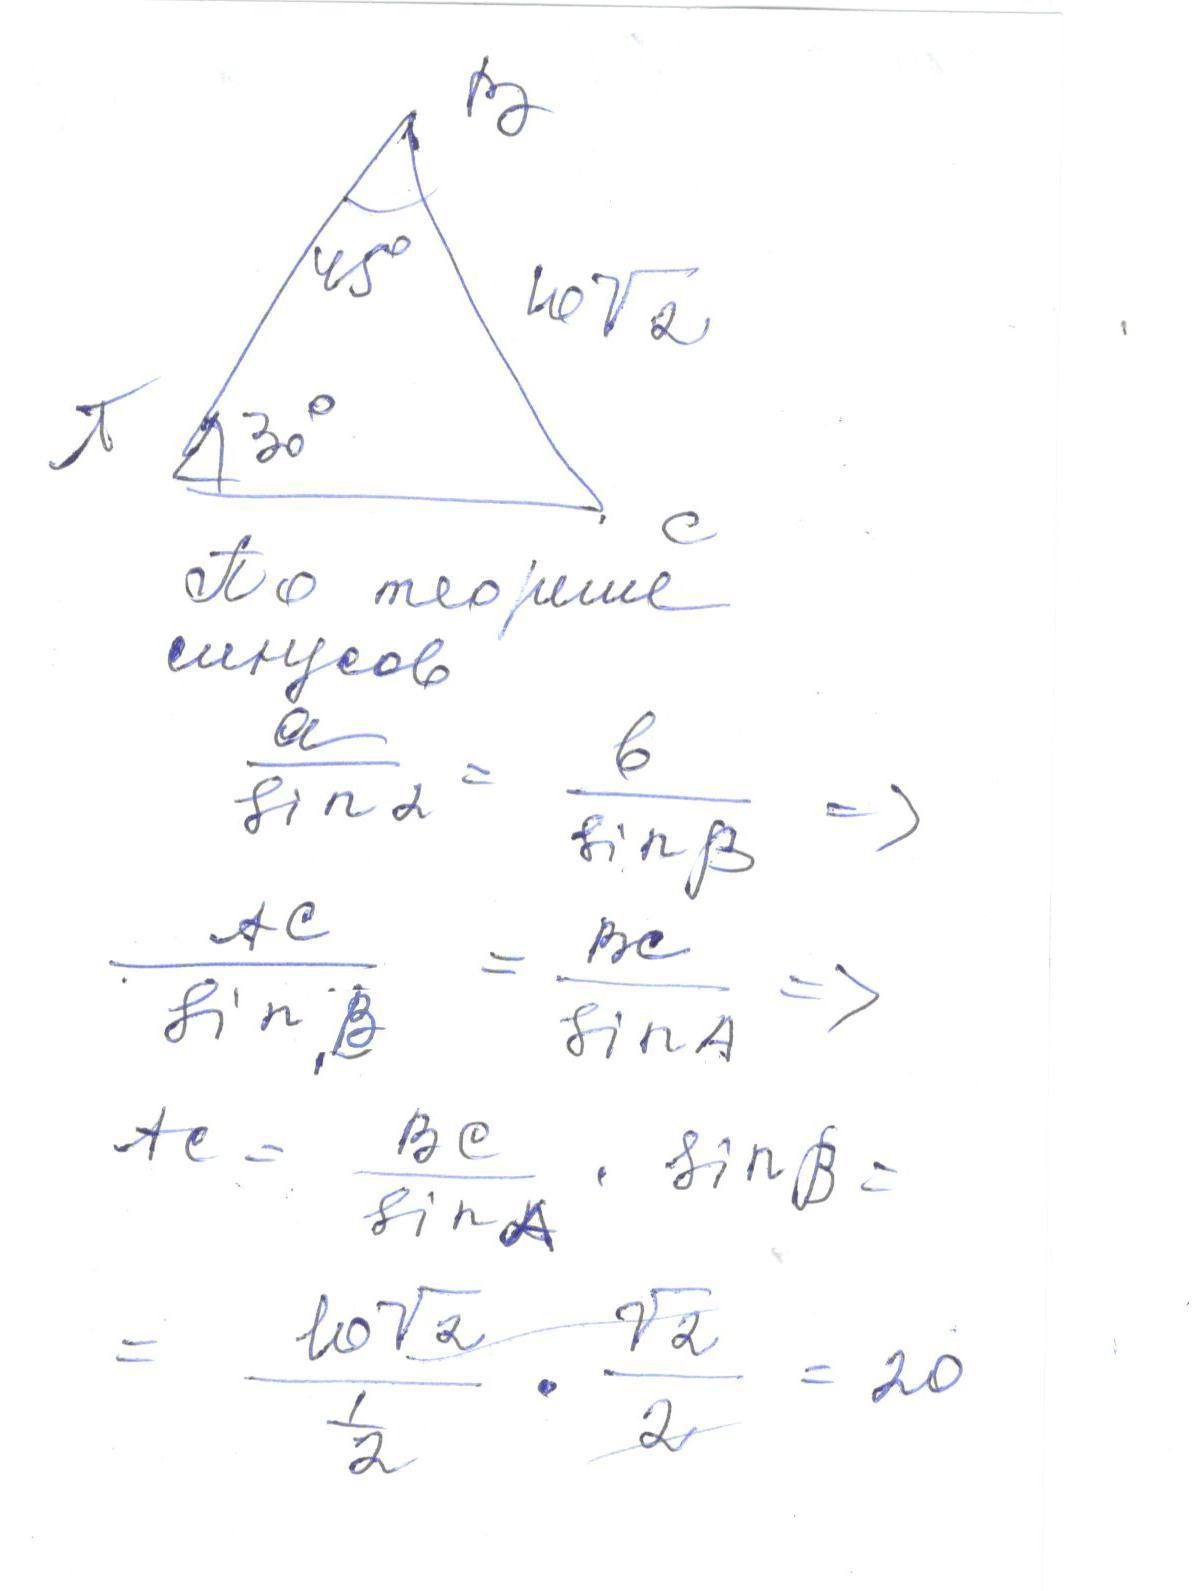 В
45°
10√2
А
30°
С
По теореме
синусов
a/sin α = b/sin β =>
AC/sin B = BC/sin A =>
AC = BC/sin A · sin B =
= 10√2/(1/2) · √2/2 = 20